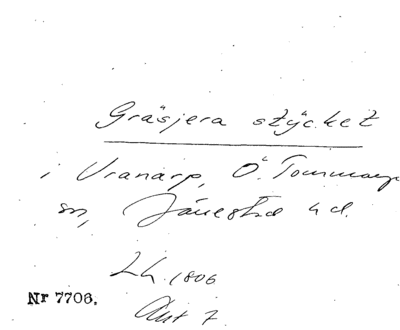 Gräsjera stycket
i Vranarp, Ö. Tommarp
sn, Järrestad hd.
Lh. 1806
Akt 7.
Nr 7706.